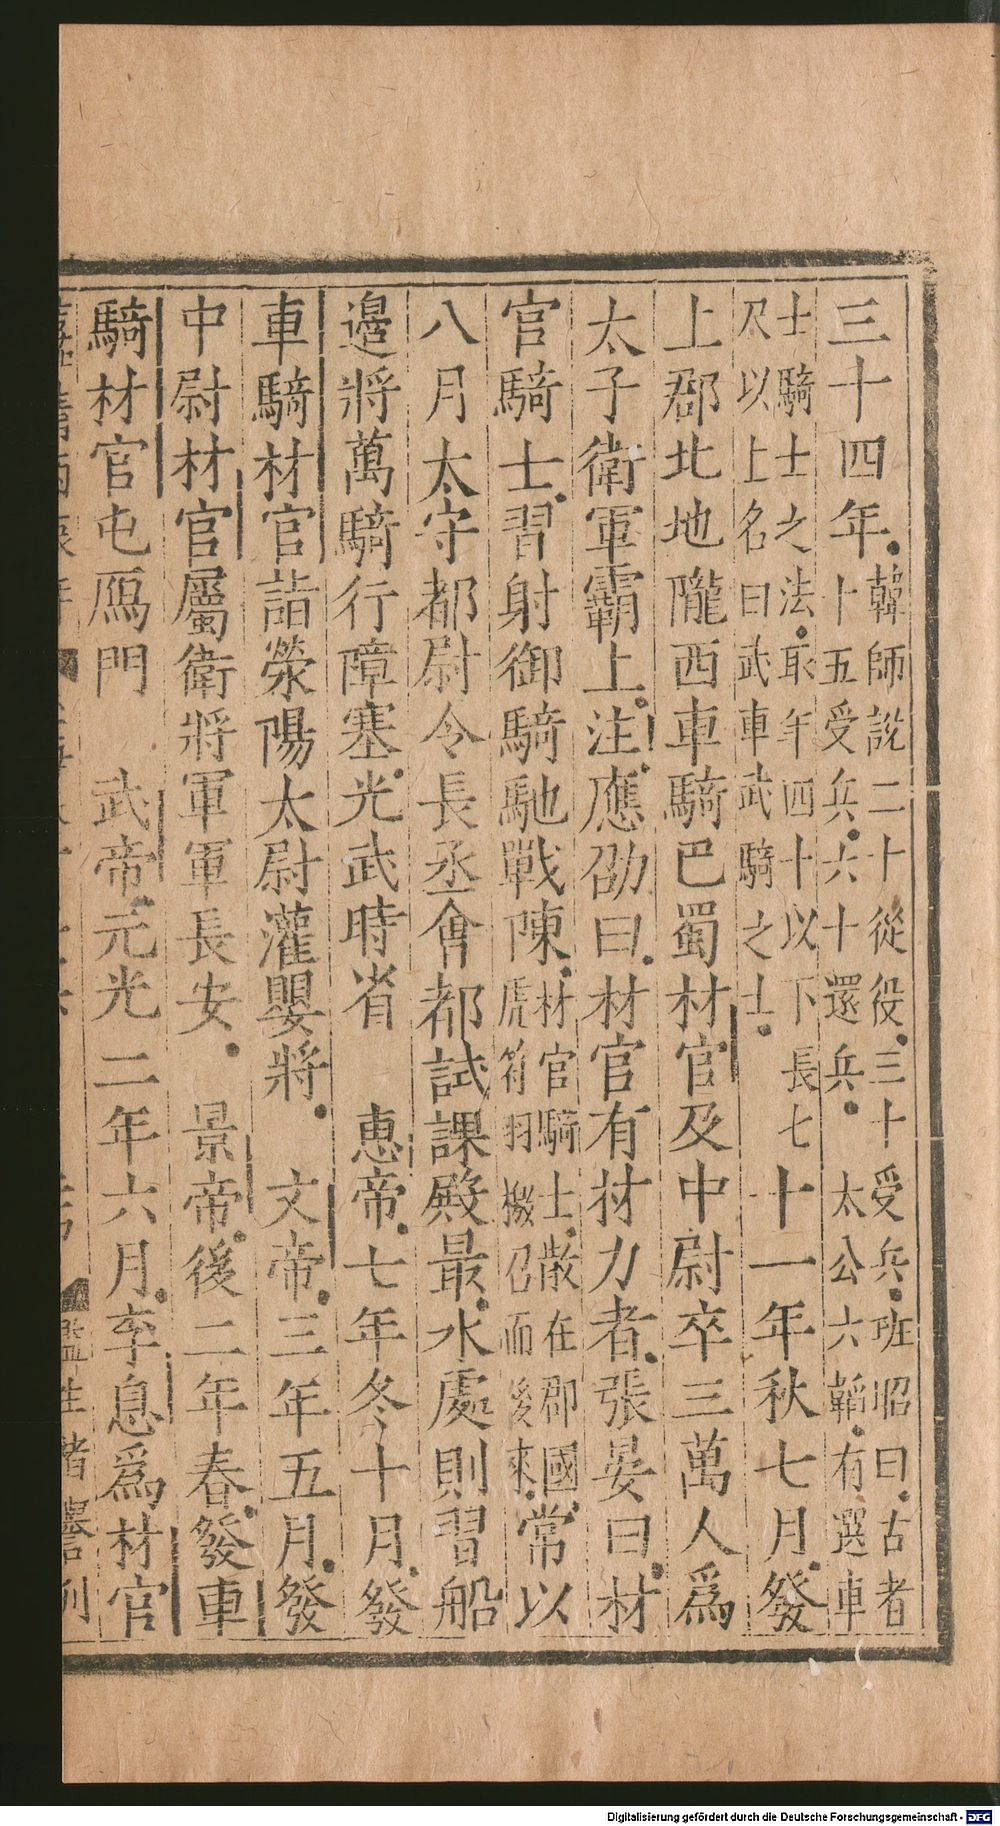 三十四年韓師說二十從役三十受兵班昭曰古者
卜五受兵六十還兵太公六韜有選車
士騎士之法取年四十以下長七
尺以上名曰武車武騎之士十一年秋七月發
上郡北地隴西車騎巴蜀材官及中尉卒三萬人爲
太子衛軍霸上注應劭曰材官有材力者張晏曰材
官騎士習射御騎馳戰陳材官騎士散在郡國
虎符羽檄召而後來常以
八月太守都尉令長丞會都試課殿最水處則習船
邊將萬騎行障塞光武時省 惠帝七年冬十月發
車騎材官詣滎陽太尉灌嬰將 文帝三年五月發
中尉材官屬衛將軍軍長安 景帝後二年春發車
騎材官屯鴈門 武帝元光二年六月李息爲材官
Digitalisierung gefördert durch die Deutsche Forschungsgemeinschaft - DFG